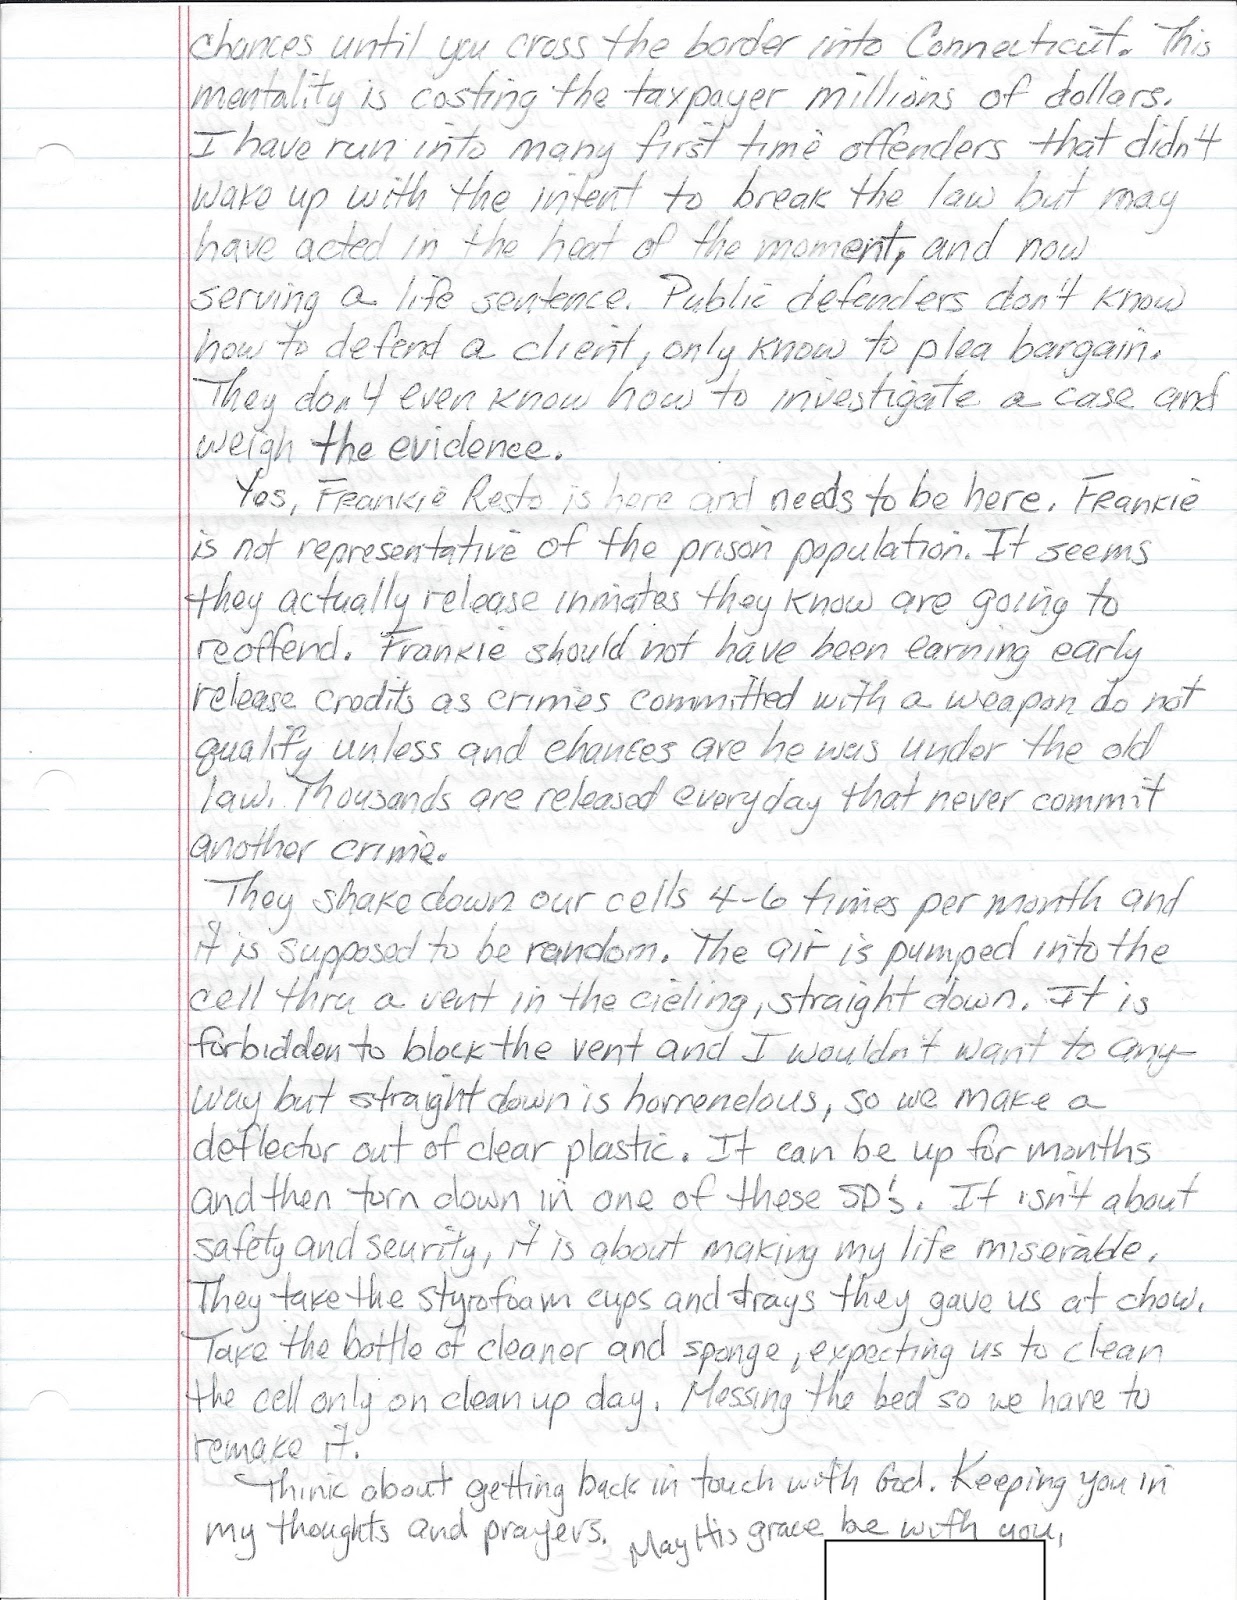 chances until you cross the border into Connecticut. This
mentality is costing the taxpayer millions of dollars.
I have run into many first time offenders that didn't
wake up with the intent to break the law but may
have acted in the heat of the moment, and now
serving a life sentence. Public defenders don't know
how to defend a client, only know to plea bargain.
They don't even know how to investigate a case and
weigh the evidence.
Yes, Frankie Resto is here and needs to be here. Frankie
is not representative of the prison population. It seems
they actually release inmates they know are going to
reoffend. Frankie should not have been earning early
release credits as crimes committed with a weapon do not
qualify unless and chances are he was under the old
law. Thousands are released everyday that never commit
another crime.
They shake down our cells 4-6 times per month and
it is supposed to be random. The air is pumped into the
cell thru a vent in the cieling, straight down. It is
forbidden to block the vent and I wouldn't want to any-
way but straight down is horrenelous, so we make a
deflector out of clear plastic. It can be up for months
and then torn down in one of these SD's. It isn't about
safety and seurity, it is about making my life miserable.
They take the styrofoam cups and trays they gave us at chow.
Take the bottle of cleaner and sponge, expecting us to clean
the cell only on clean up day. Messing the bed so we have to
remake it.
Think about getting back in touch with God. Keeping you in
my thoughts and prayers. May His grace be with you,